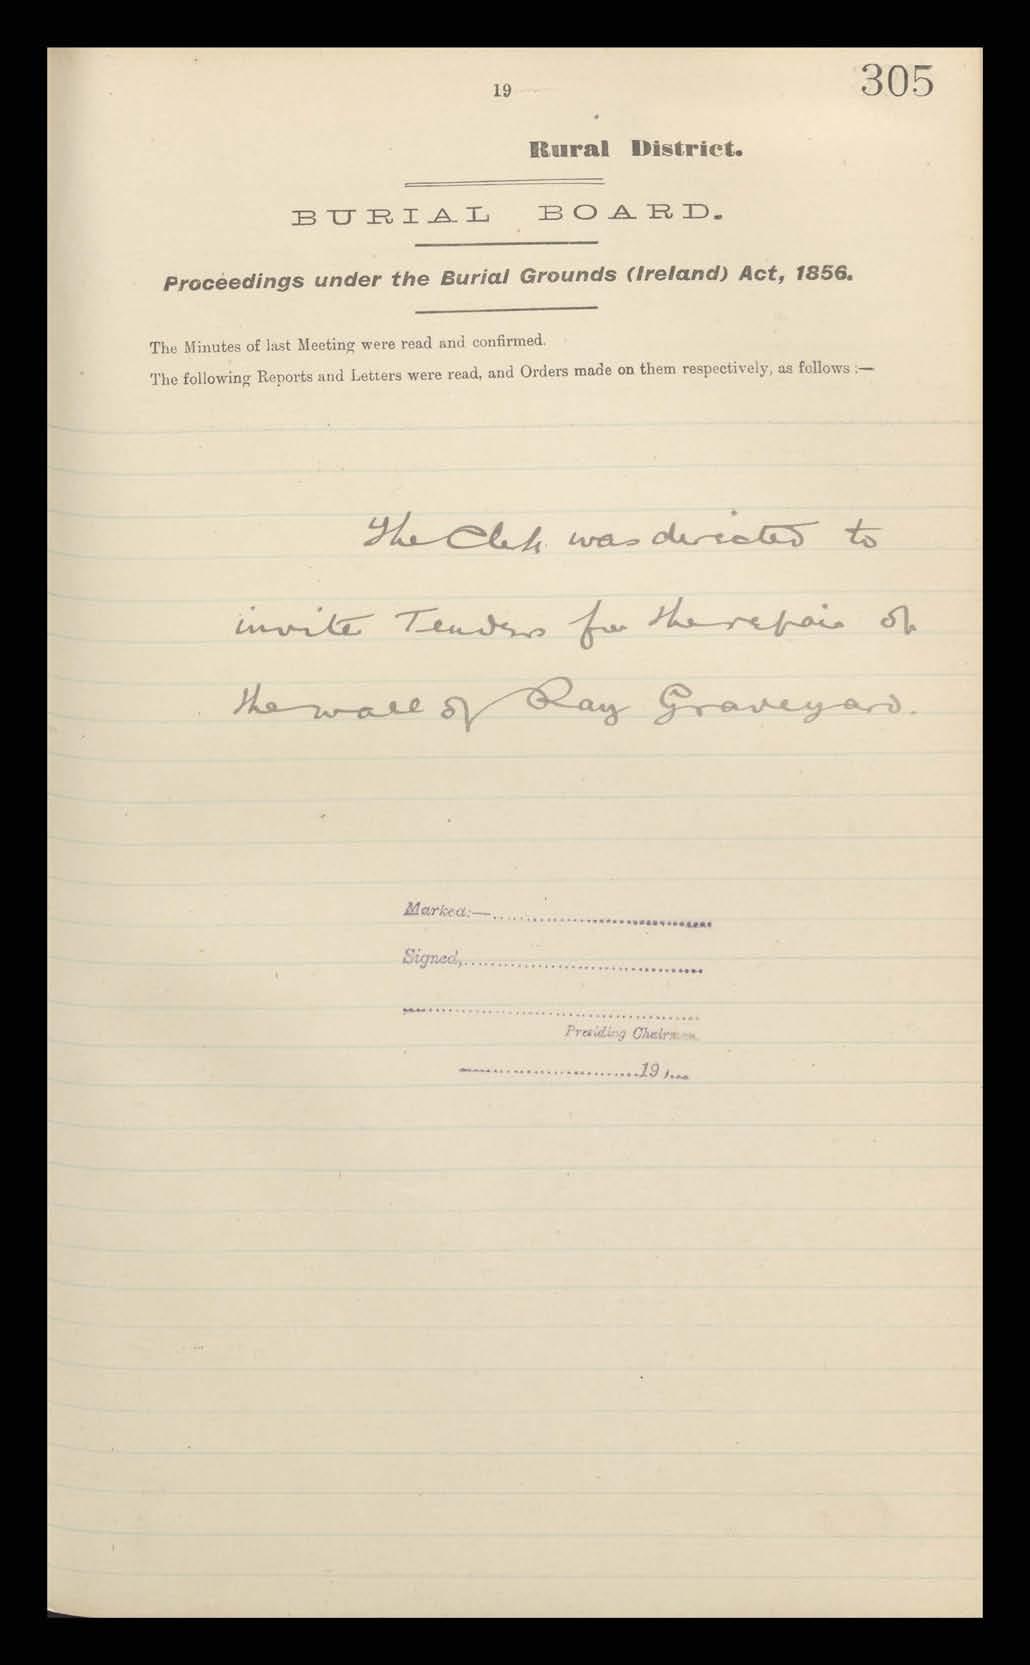 305
19
Rural District.
BURIAL BOARD.
Proceedings under the Burial Grounds (Ireland) Act, 1856.
The Minutes of last Meeting were read and confirmed.
The following Reports and Letters were read, and Orders made on them respectively, as follows :—
The Clerk was directed to
invite Tenders for the repair of
the wall of Ray Graveyard.
Marked:—
Signed,
Presiding Chairman
19